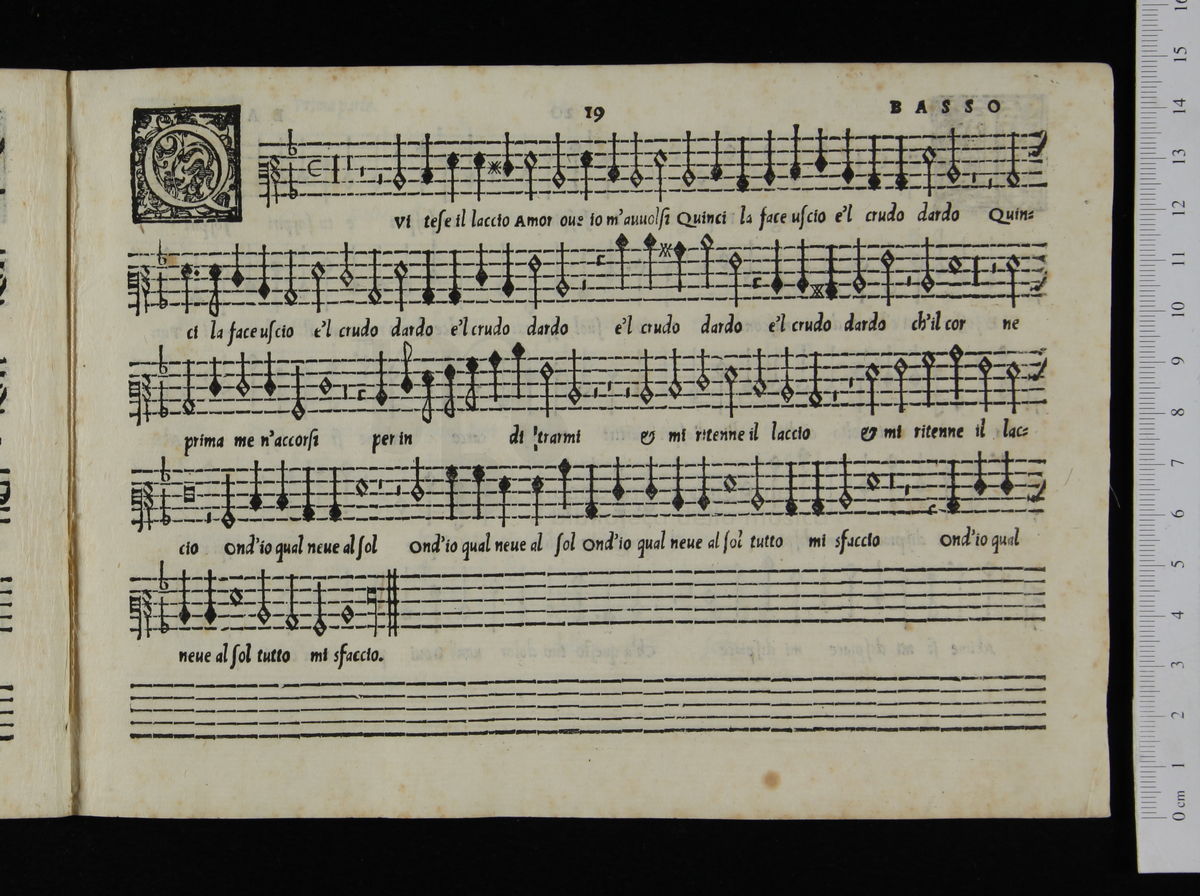 19 BASSO
QVi tese il laccio Amor oue io m'auuolsi Quinci la face uscio e'l crudo dardo Quin=
ci la face uscio e'l crudo dardo e'l crudo dardo e'l crudo dardo e'l crudo dardo ch'il cor ne
prima me n'accorsi per in di trarmi & mi ritenne il laccio & mi ritenne il lac=
cio Ond'io qual neue al sol Ond'io qual neue al sol Ond'io qual neue al sol tutto mi sfaccio Ond'io qual
neue al sol tutto mi sfaccio.
0 cm 1 2 3 4 5 6 7 8 9 10 11 12 13 14 15 16